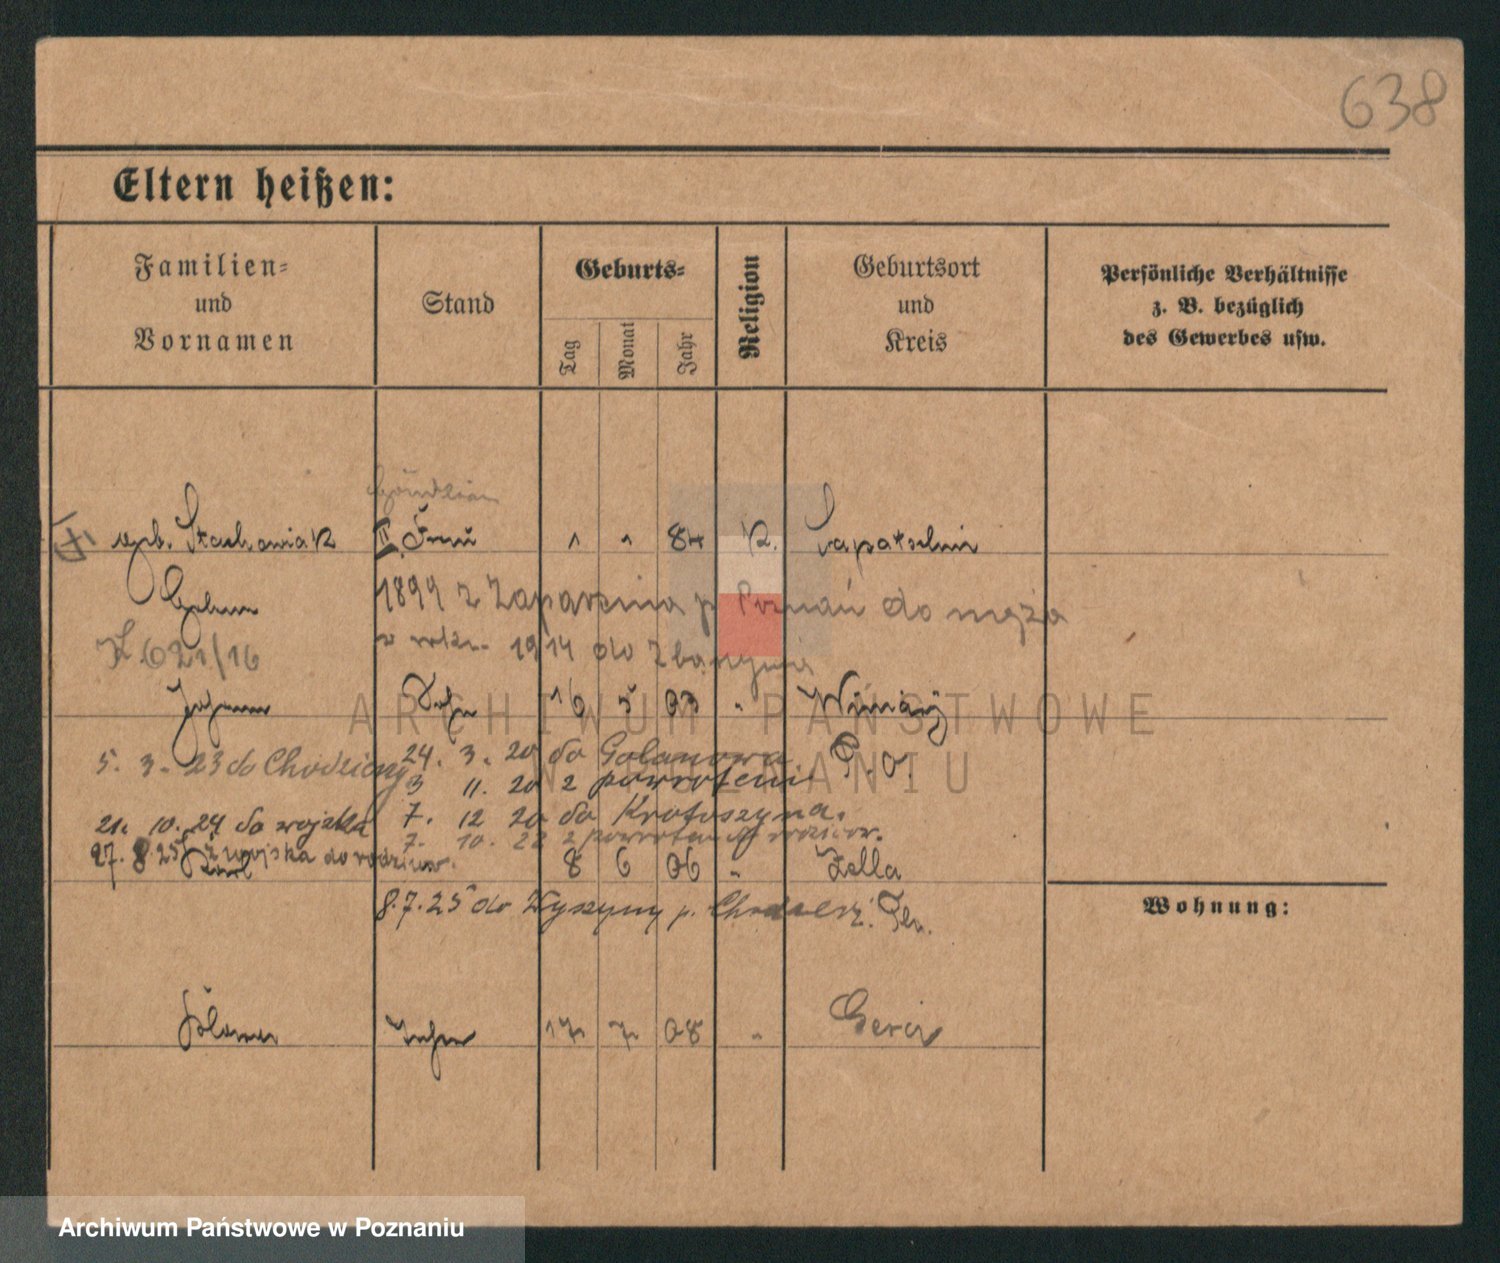 638
Eltern heißen:
Familien=
und
Vornamen
Stand
Geburts=
Tag
Monat
Jahr
Religion
Geburtsort
und
Kreis
Persönliche Verhältnisse
z. B. bezüglich
des Gewerbes usw.
geb. Stachowiak II. Frau 84 K.
1899 z p Poznań do męża
K 621/16 w roku 1914 do Zbąszynia
Johann Sohn 16 5 03 "
24. 3. 20 do Golanowa P. O.
5. 3. 23 do Chodzieży
3 11. 20 z powrotem
7. 12 20 do Krotoszyna.
21. 10. 24 do wojska
7. 10. 22 z powrotem do rodziców.
27. 8 25 z wojska do rodziców.
Karl 8 6 06 " Zella
8.7.25 do Wyszyny p. Chodzież.
Wohnung:
17 7 08 "
ARCHIWUM PAŃSTWOWE
W POZNANIU
Archiwum Państwowe w Poznaniu